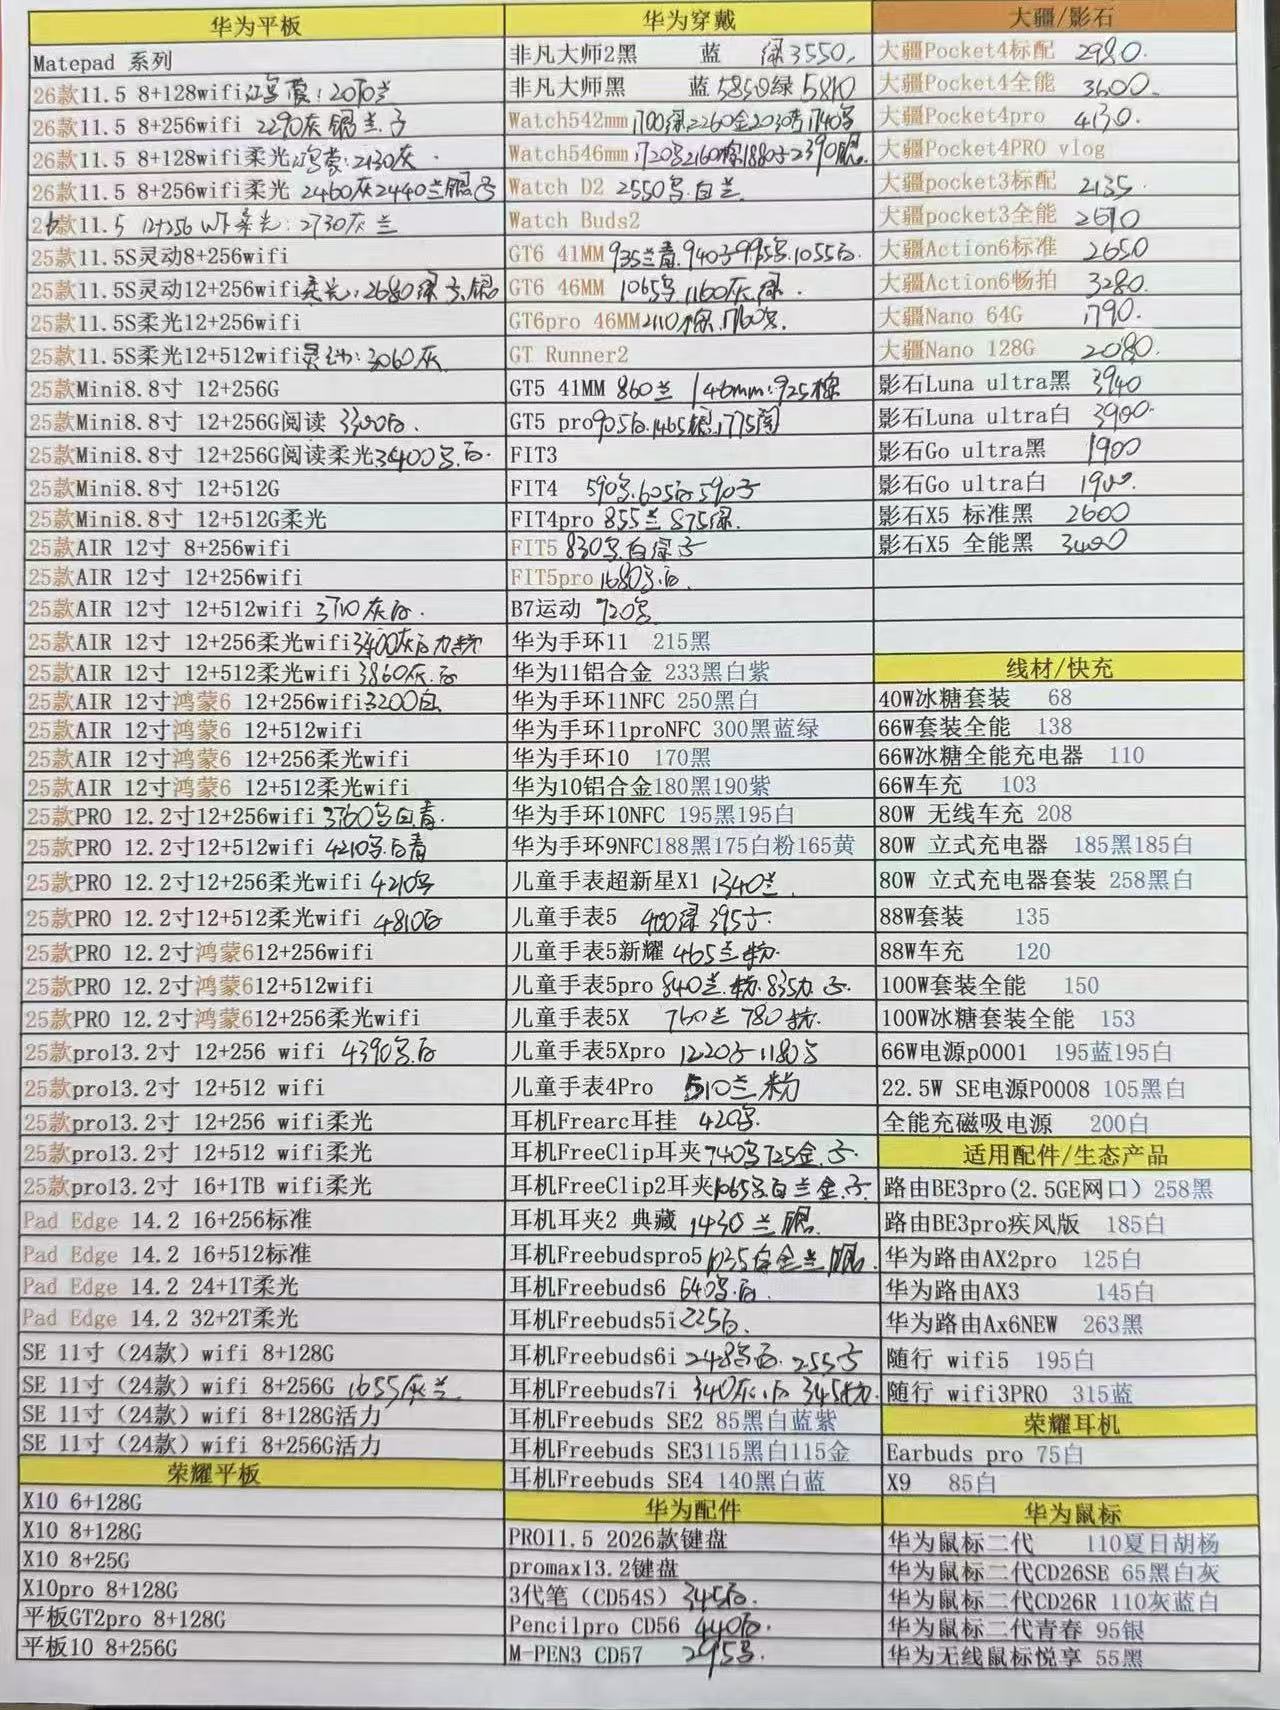 华为平板
Matepad 系列
26款11.5 8+128wifi鸿蒙:2070兰
26款11.5 8+256wifi 2290灰银兰子
26款11.5 8+128wifi柔光鸿蒙:2130灰.
26款11.5 8+256wifi柔光 2460灰2440兰银子
26款11.5 12+256 wifi柔光:2730灰兰
25款11.5S灵动8+256wifi
25款11.5S灵动12+256wifi柔光:2680绿子.银
25款11.5S柔光12+256wifi
25款11.5S柔光12+512wifi灵动:3060灰
25款Mini8.8寸 12+256G
25款Mini8.8寸 12+256G阅读 3300白.
25款Mini8.8寸 12+256G阅读柔光3400号.白.
25款Mini8.8寸 12+512G
25款Mini8.8寸 12+512G柔光
25款AIR 12寸 8+256wifi
25款AIR 12寸 12+256wifi
25款AIR 12寸 12+512wifi 3710灰白.
25款AIR 12寸 12+256柔光wifi3400灰白
25款AIR 12寸 12+512柔光wifi3860灰.白
25款AIR 12寸鸿蒙6 12+256wifi3200白
25款AIR 12寸鸿蒙6 12+512wifi
25款AIR 12寸鸿蒙6 12+256柔光wifi
25款AIR 12寸鸿蒙6 12+512柔光wifi
25款PRO 12.2寸12+256wifi 3760号白青.
25款PRO 12.2寸12+512wifi 4210号.白青
25款PRO 12.2寸12+256柔光wifi 4210号
25款PRO 12.2寸12+512柔光wifi 4810白
25款PRO 12.2寸鸿蒙612+256wifi
25款PRO 12.2寸鸿蒙612+512wifi
25款PRO 12.2寸鸿蒙612+256柔光wifi
25款pro13.2寸 12+256 wifi 4390号.白
25款pro13.2寸 12+512 wifi
25款pro13.2寸 12+256 wifi柔光
25款pro13.2寸 12+512 wifi柔光
25款pro13.2寸 16+1TB wifi柔光
Pad Edge 14.2 16+256标准
Pad Edge 14.2 16+512标准
Pad Edge 14.2 24+1T柔光
Pad Edge 14.2 32+2T柔光
SE 11寸（24款）wifi 8+128G
SE 11寸（24款）wifi 8+256G 1655灰兰.
SE 11寸（24款）wifi 8+128G活力
SE 11寸（24款）wifi 8+256G活力
荣耀平板
X10 6+128G
X10 8+128G
X10 8+25G
X10pro 8+128G
平板GT2pro 8+128G
平板10 8+256G
华为穿戴
非凡大师2黑 蓝 绿3550.
非凡大师黑 蓝5850绿5810
Watch542mm1700绿.2260金2030青1740号
Watch546mm1720号2160棕1880子2390银.
Watch D2 2550号.白兰.
Watch Buds2
GT6 41MM 935兰青.940子995号.1055白.
GT6 46MM 1065号1160灰.绿.
GT6pro 46MM2110棕.1760号.
GT Runner2
GT5 41MM 860兰 / 46mm:925棕
GT5 pro905白.1465银.1775陶
FIT3
FIT4 590号.605白590子
FIT4pro 855兰875绿.
FIT5 830号.白绿子
FIT5pro1680号.白.
B7运动 720号
华为手环11 215黑
华为11铝合金 233黑白紫
华为手环11NFC 250黑白
华为手环11proNFC 300黑蓝绿
华为手环10 170黑
华为10铝合金180黑190紫
华为手环10NFC 195黑195白
华为手环9NFC188黑175白粉165黄
儿童手表超新星X1 1340兰.
儿童手表5 400绿395子.
儿童手表5新耀 465兰粉.
儿童手表5pro 840兰.粉.835 子.
儿童手表5X 760兰780粉.
儿童手表5Xpro 1220子1180号
儿童手表4Pro 510兰.粉
耳机Frearc耳挂 420号.
耳机FreeClip耳夹740号725金.子.
耳机FreeClip2耳夹1065号白兰金.子.
耳机耳夹2 典藏 1430兰银.
耳机Freebudspro5 1035白金兰银.
耳机Freebuds6 640号.白.
耳机Freebuds5i225白.
耳机Freebuds6i 248号白.255子
耳机Freebuds7i 340灰.白 345粉.
耳机Freebuds SE2 85黑白蓝紫
耳机Freebuds SE3115黑白115金
耳机Freebuds SE4 140黑白蓝
华为配件
PRO11.5 2026款键盘
promax13.2键盘
3代笔（CD54S）345白.
Pencilpro CD56 440白.
M-PEN3 CD57 295号.
大疆/影石
大疆Pocket4标配 2980.
大疆Pocket4全能 3600.
大疆Pocket4pro 4130.
大疆Pocket4PRO vlog
大疆pocket3标配 2135.
大疆pocket3全能 2670
大疆Action6标准 2650
大疆Action6畅拍 3280.
大疆Nano 64G 1790.
大疆Nano 128G 2080.
影石Luna ultra黑 3940
影石Luna ultra白 3900.
影石Go ultra黑 1900
影石Go ultra白 1900.
影石X5 标准黑 2600
影石X5 全能黑 3400
线材/快充
40W冰糖套装 68
66W套装全能 138
66W冰糖全能充电器 110
66W车充 103
80W 无线车充 208
80W 立式充电器 185黑185白
80W 立式充电器套装 258黑白
88W套装 135
88W车充 120
100W套装全能 150
100W冰糖套装全能 153
66W电源p0001 195蓝195白
22.5W SE电源P0008 105黑白
全能充磁吸电源 200白
适用配件/生态产品
路由BE3pro(2.5GE网口）258黑
路由BE3pro疾风版 185白
华为路由AX2pro 125白
华为路由AX3 145白
华为路由Ax6NEW 263黑
随行 wifi5 195白
随行 wifi3PRO 315蓝
荣耀耳机
Earbuds pro 75白
X9 85白
华为鼠标
华为鼠标二代 110夏日胡杨
华为鼠标二代CD26SE 65黑白灰
华为鼠标二代CD26R 110灰蓝白
华为鼠标二代青春 95银
华为无线鼠标悦享 55黑